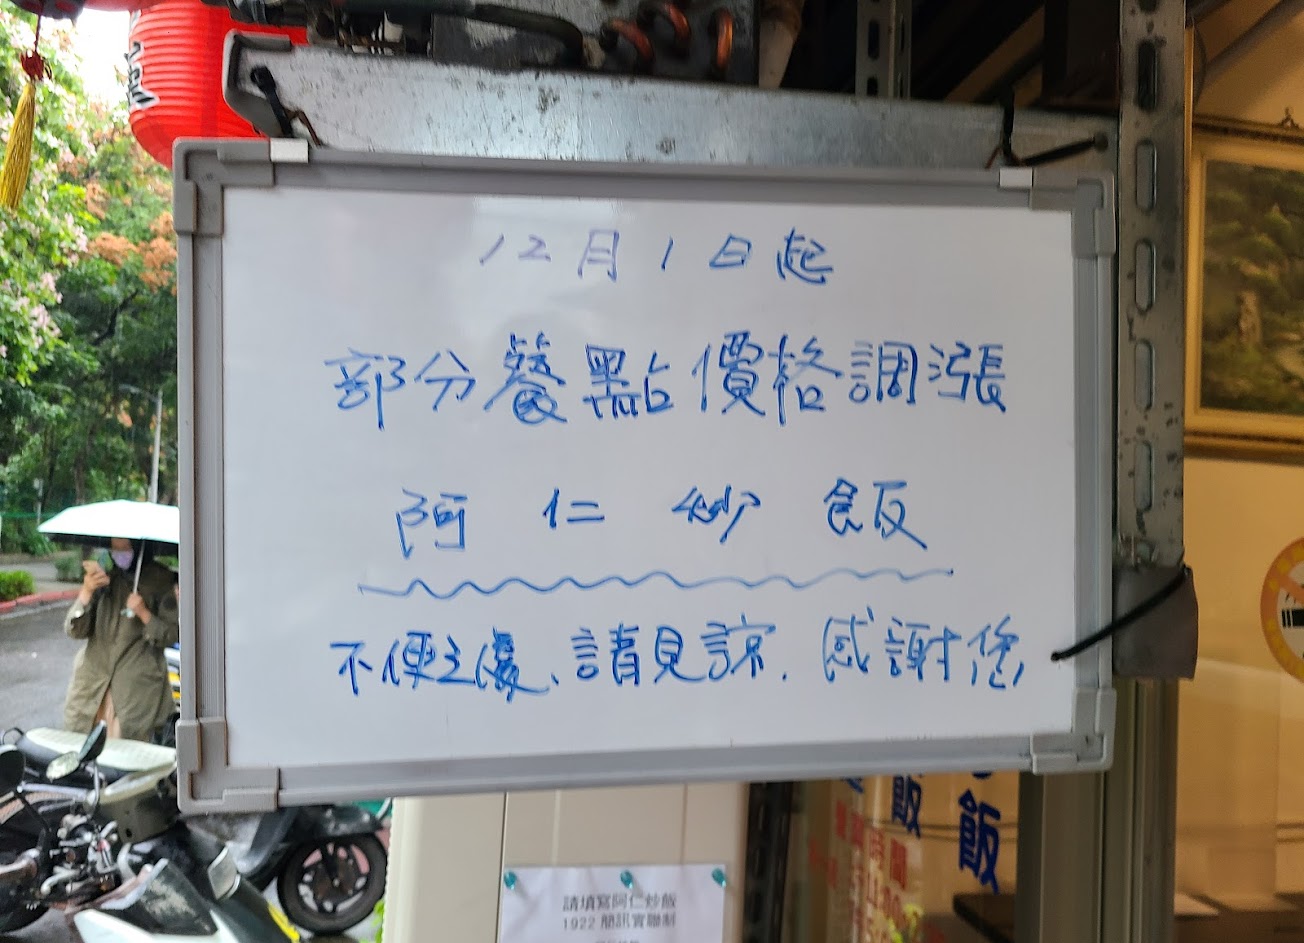 12月1日起
部分餐點價格調漲
阿仁炒飯
不便之處、請見諒.感謝您
請填寫阿仁炒飯
1922 簡訊實聯制
飯
飯
時間